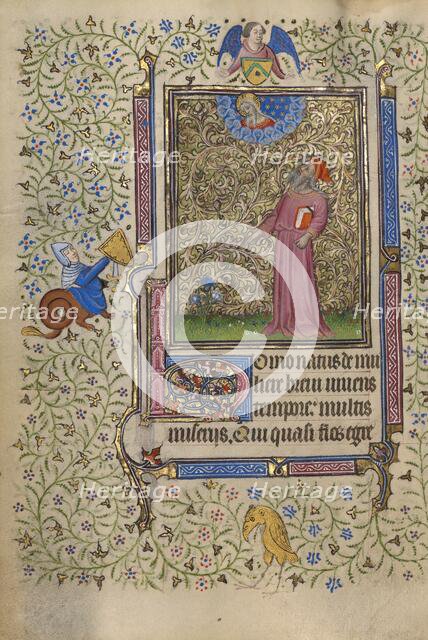 Heritage Heritage Heritage
Heritage Heritage
©
Homo natus de mu
liere breui uiuens
tempore multis
miserijs, Qui quasi flos egre
Heritage Heritage Heritage